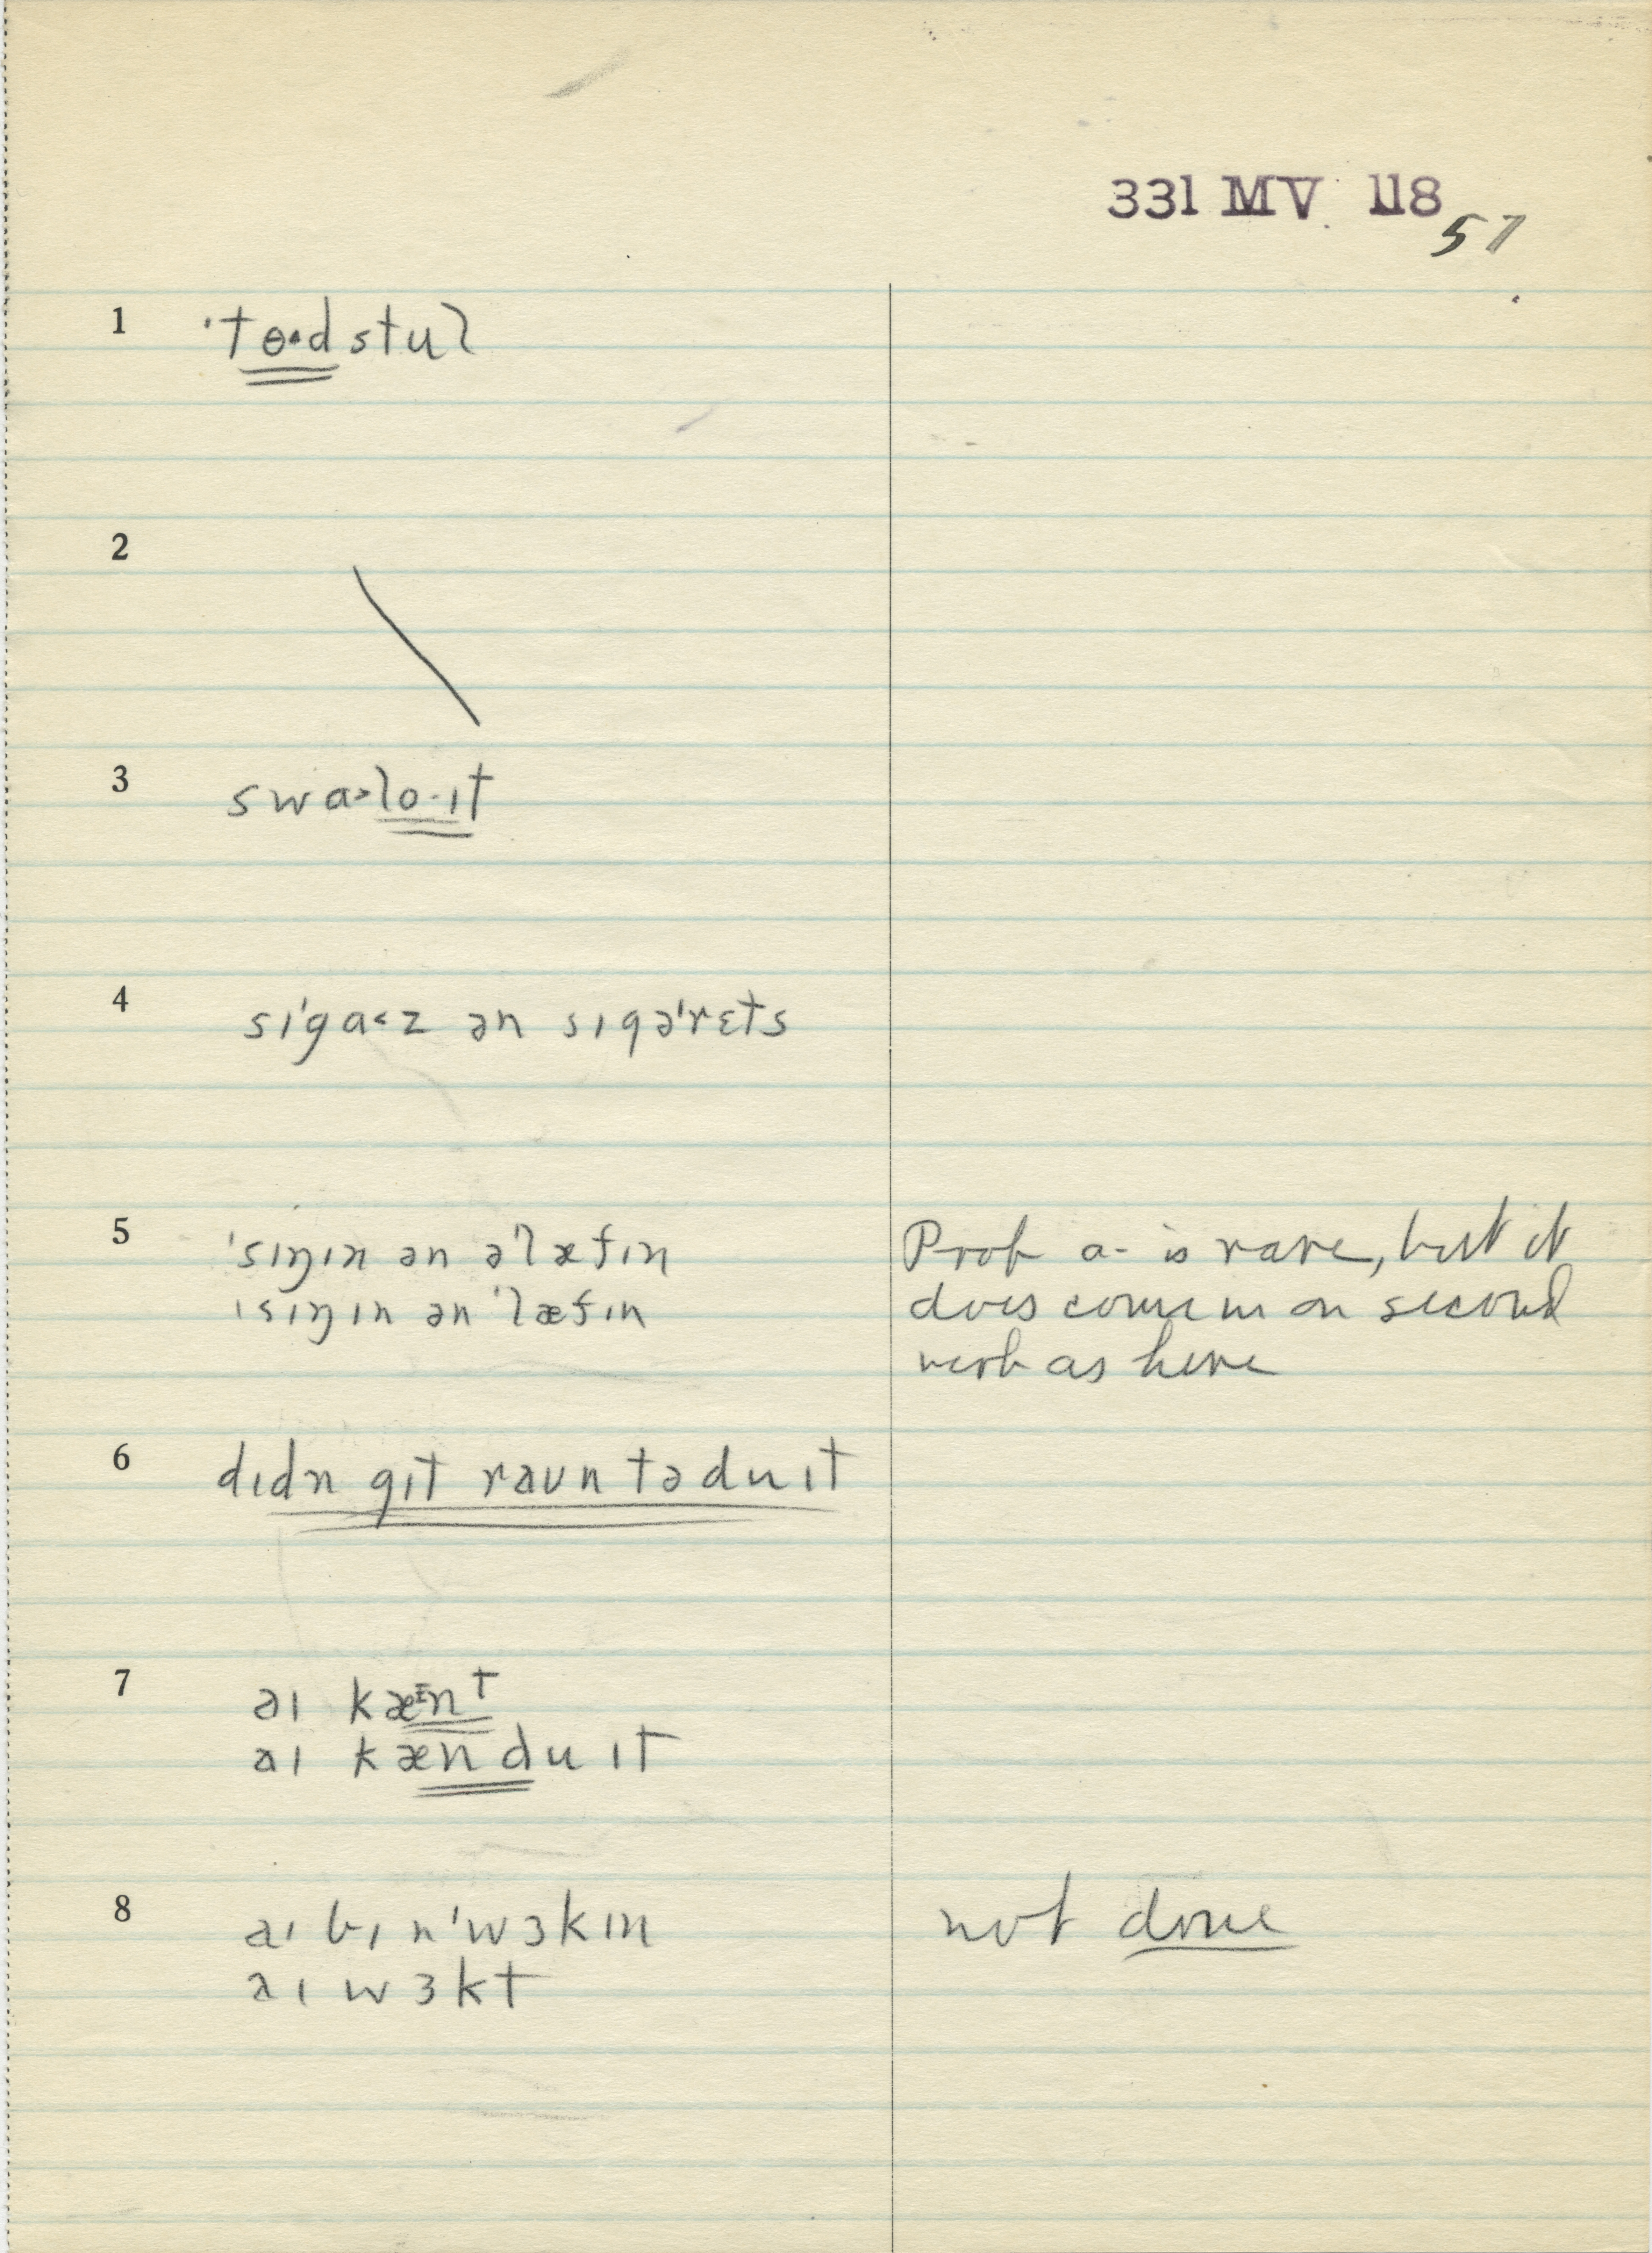 331 MV 118
57
1 ˈtɵ·dstul
2
3 swɑ˃lo·ɪt
4 sɪˈgɑ˂z ən sɪgəˈrɛts
5 ˈsɪŋɪn ən əˈlæfɪn
ˈsɪŋɪn ən ˈlæfɪn
Prob a- is rare, but it
does come in on second
verb as here
6 dɪdn gɪt raun tə du ɪt
7 aɪ kæᴱnt
aɪ kæn du ɪt
8 aɪ bɪn ˈwɜkɪn
aɪ wɜkt
not done